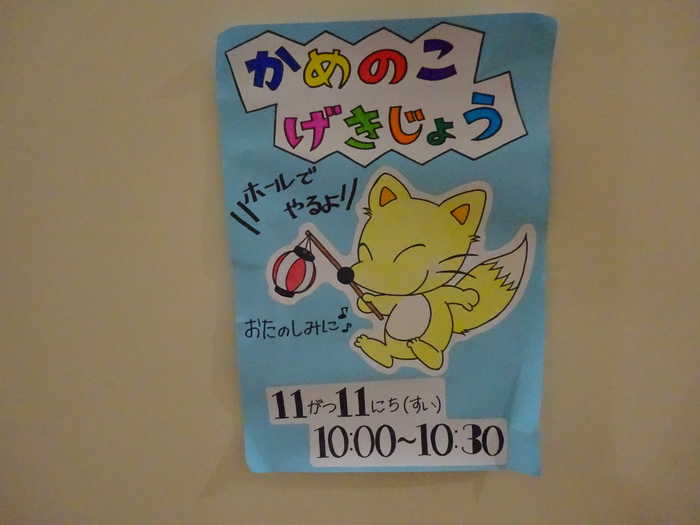 かめのこ
げきじょう
\\ホールで
やるよ!//
おたのしみに♪♪
11がつ11にち(すい)
10:00~10:30